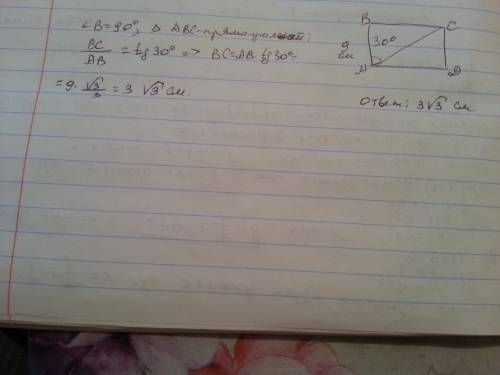 ∠B=90°, △ ABC-прямоугольный;
BC/AB = tg 30° => BC=AB·tg30°=
=9·√3/3 = 3√3 см.
B
C
9
см
30°
A
D
Ответ: 3√3 см